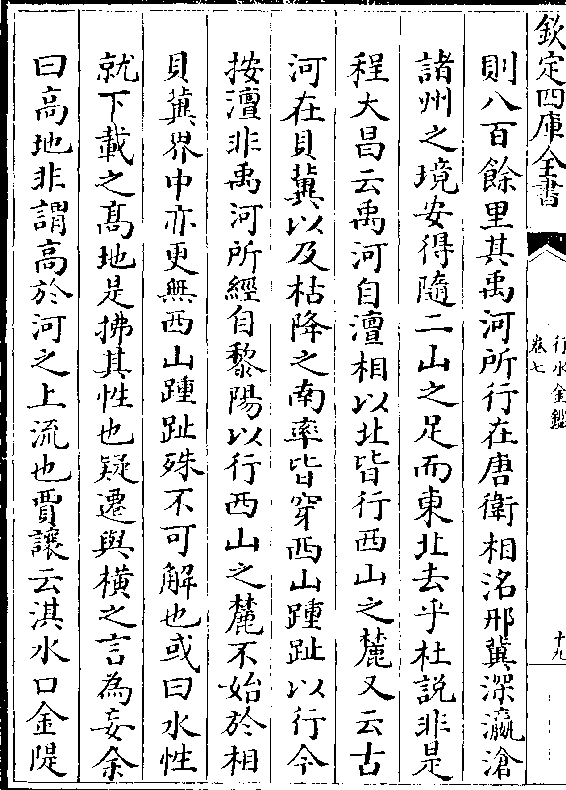 欽定四庫全書
行水金鑑
卷七
十九
則八百餘里其禹河所行在唐衛相洺邢冀深瀛滄
諸州之境安得隨二山之足而東北去乎杜説非是
程大昌云禹河自澶相以北皆行西山之麓又云古
河在貝冀以及枯降之南率皆穿西山踵趾以行今
按澶非禹河所經自黎陽以行西山之麓不始於相
貝冀界中亦更無西山踵趾殊不可解也或曰水性
就下載之髙地是拂其性也疑遷與横之言為妄余
曰高地非謂高於河之上流也賈讓云淇水口金隄